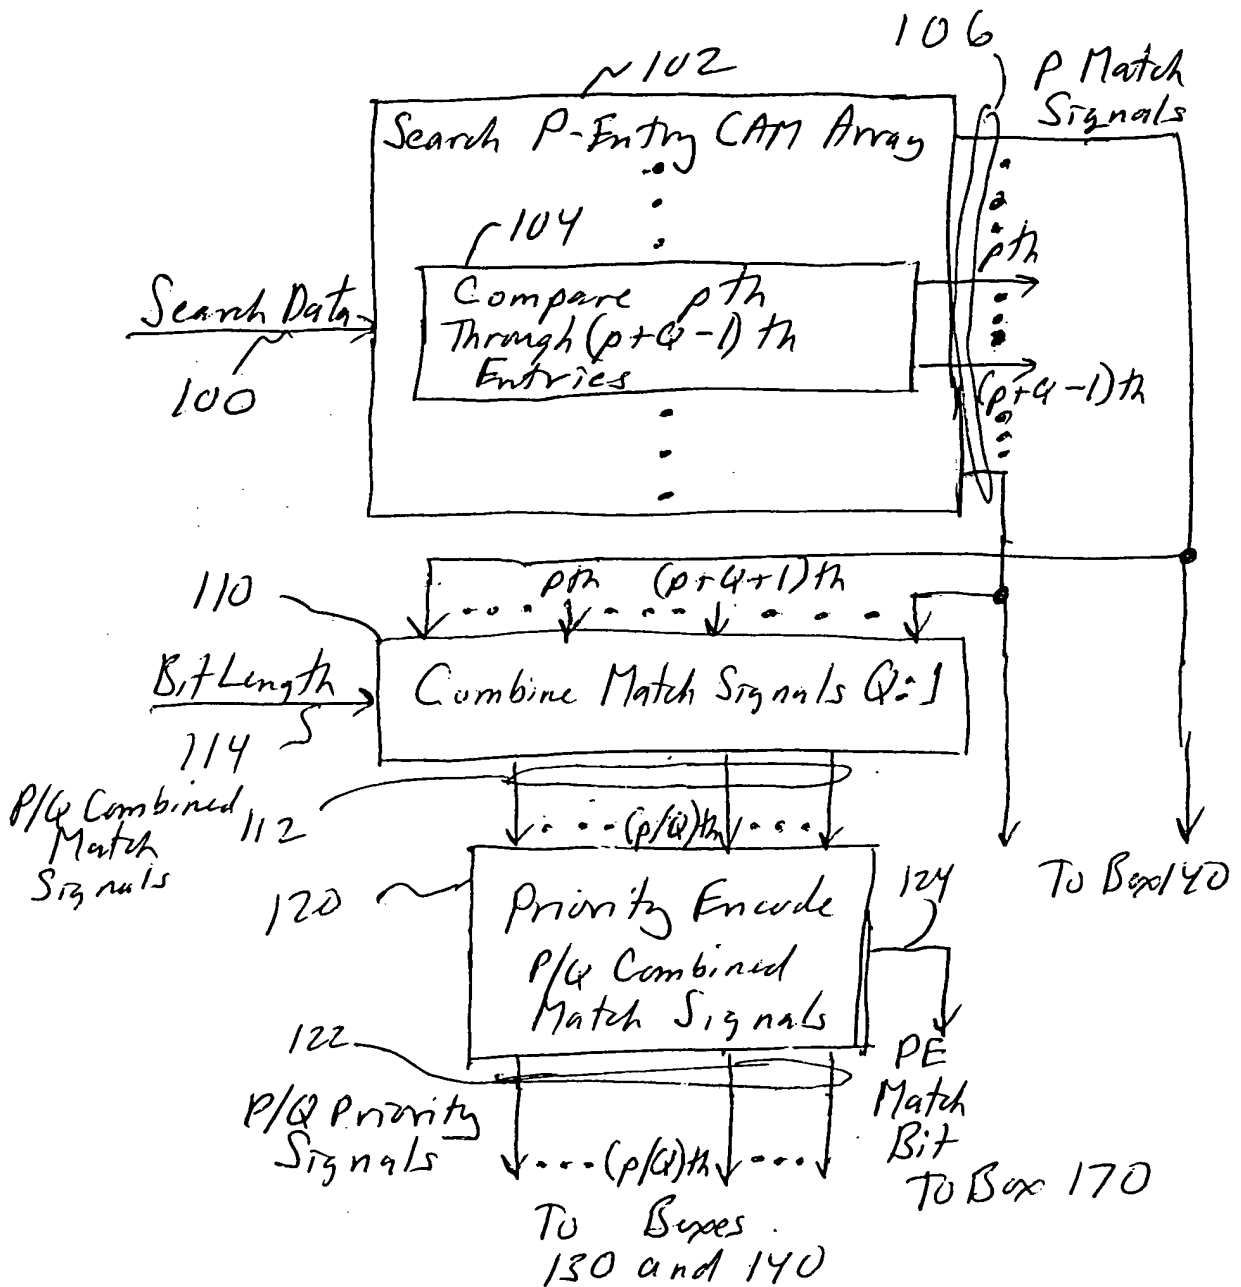 106
102
P Match
Signals
Search P-Entry CAM Array
104
pth
Search Data
Compare pth
Through (p+Q-1)th
Entries
100
(p+Q-1)th
110
pth (p+Q+1)th
Bit Length
Combine Match Signals Q:1
114
P/Q Combined
Match
Signals
112
(p/Q)th
120
Priority Encode
P/Q Combined
Match Signals
124
To Box 140
122
PE
Match
Bit
To Box 170
P/Q Priority
Signals
(p/Q)th
To Boxes
130 and 140